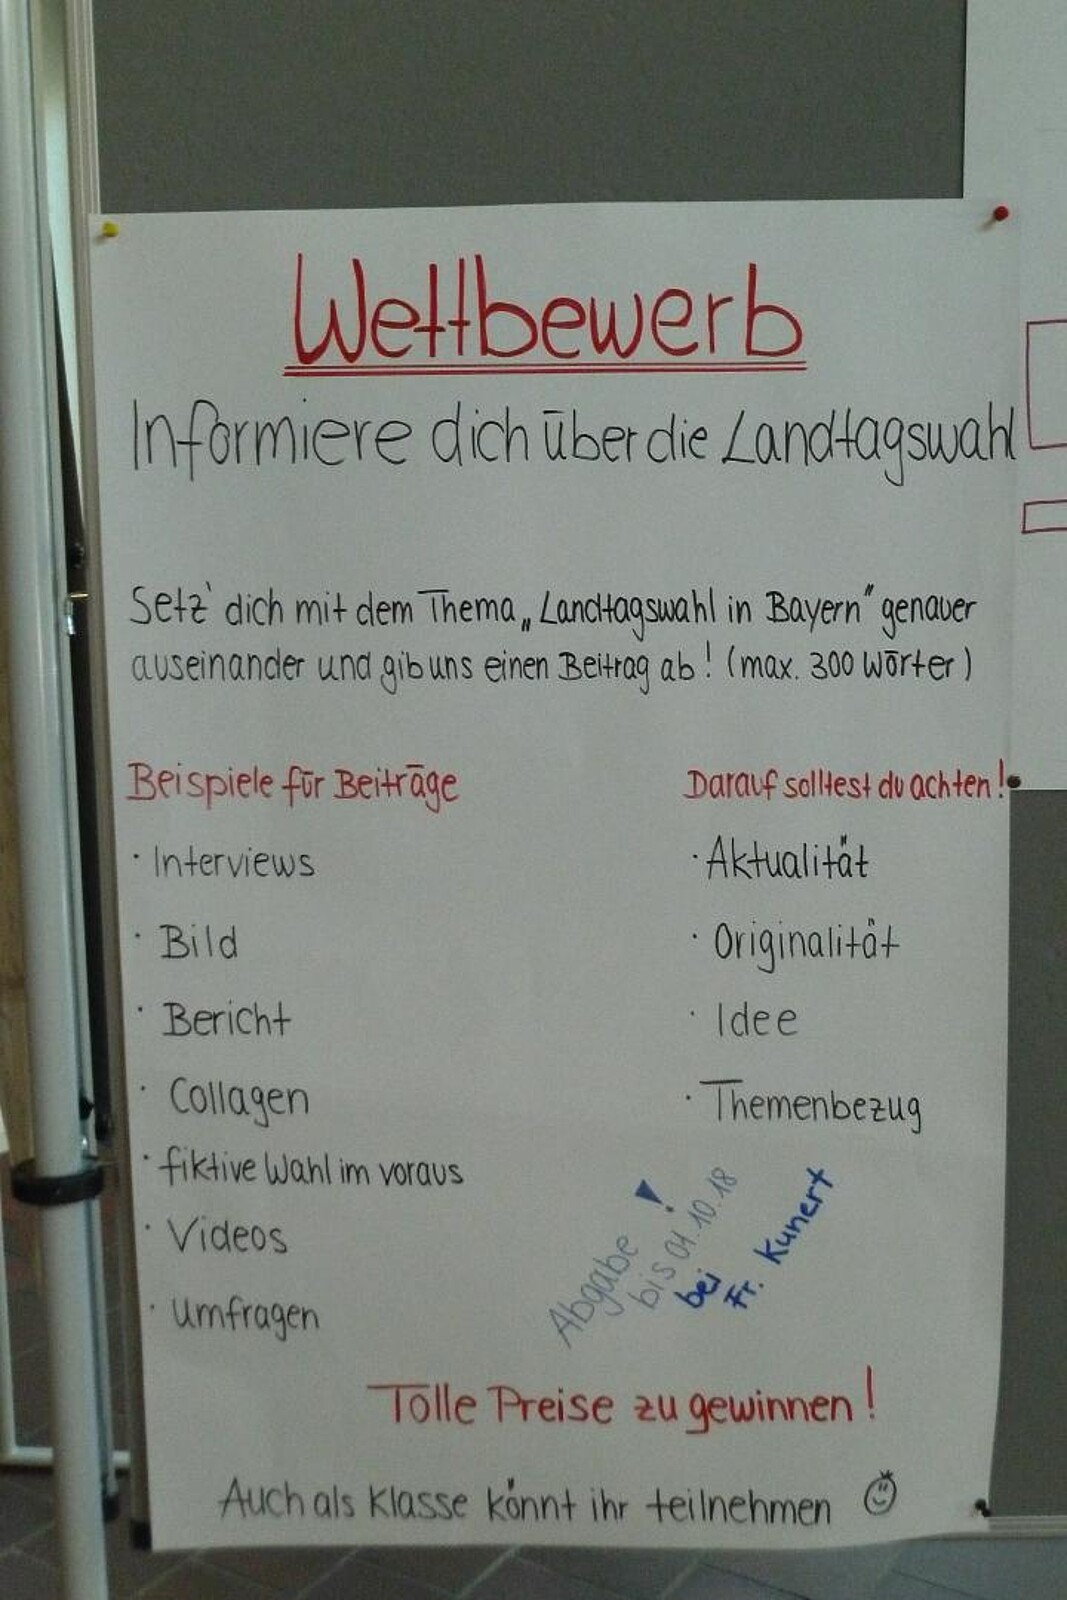 Wettbewerb
Informiere dich über die Landtagswahl
Setz' dich mit dem Thema „Landtagswahl in Bayern" genauer
auseinander und gib uns einen Beitrag ab! (max. 300 Wörter)
Beispiele für Beiträge
· Interviews
· Bild
· Bericht
· Collagen
· fiktive Wahl im voraus
· Videos
· Umfragen
Darauf solltest du achten!
· Aktualität
· Originalität
· Idee
· Themenbezug
Abgabe !
bis 04.10.18
bei
Fr. Kunert
Tolle Preise zu gewinnen!
Auch als Klasse könnt ihr teilnehmen